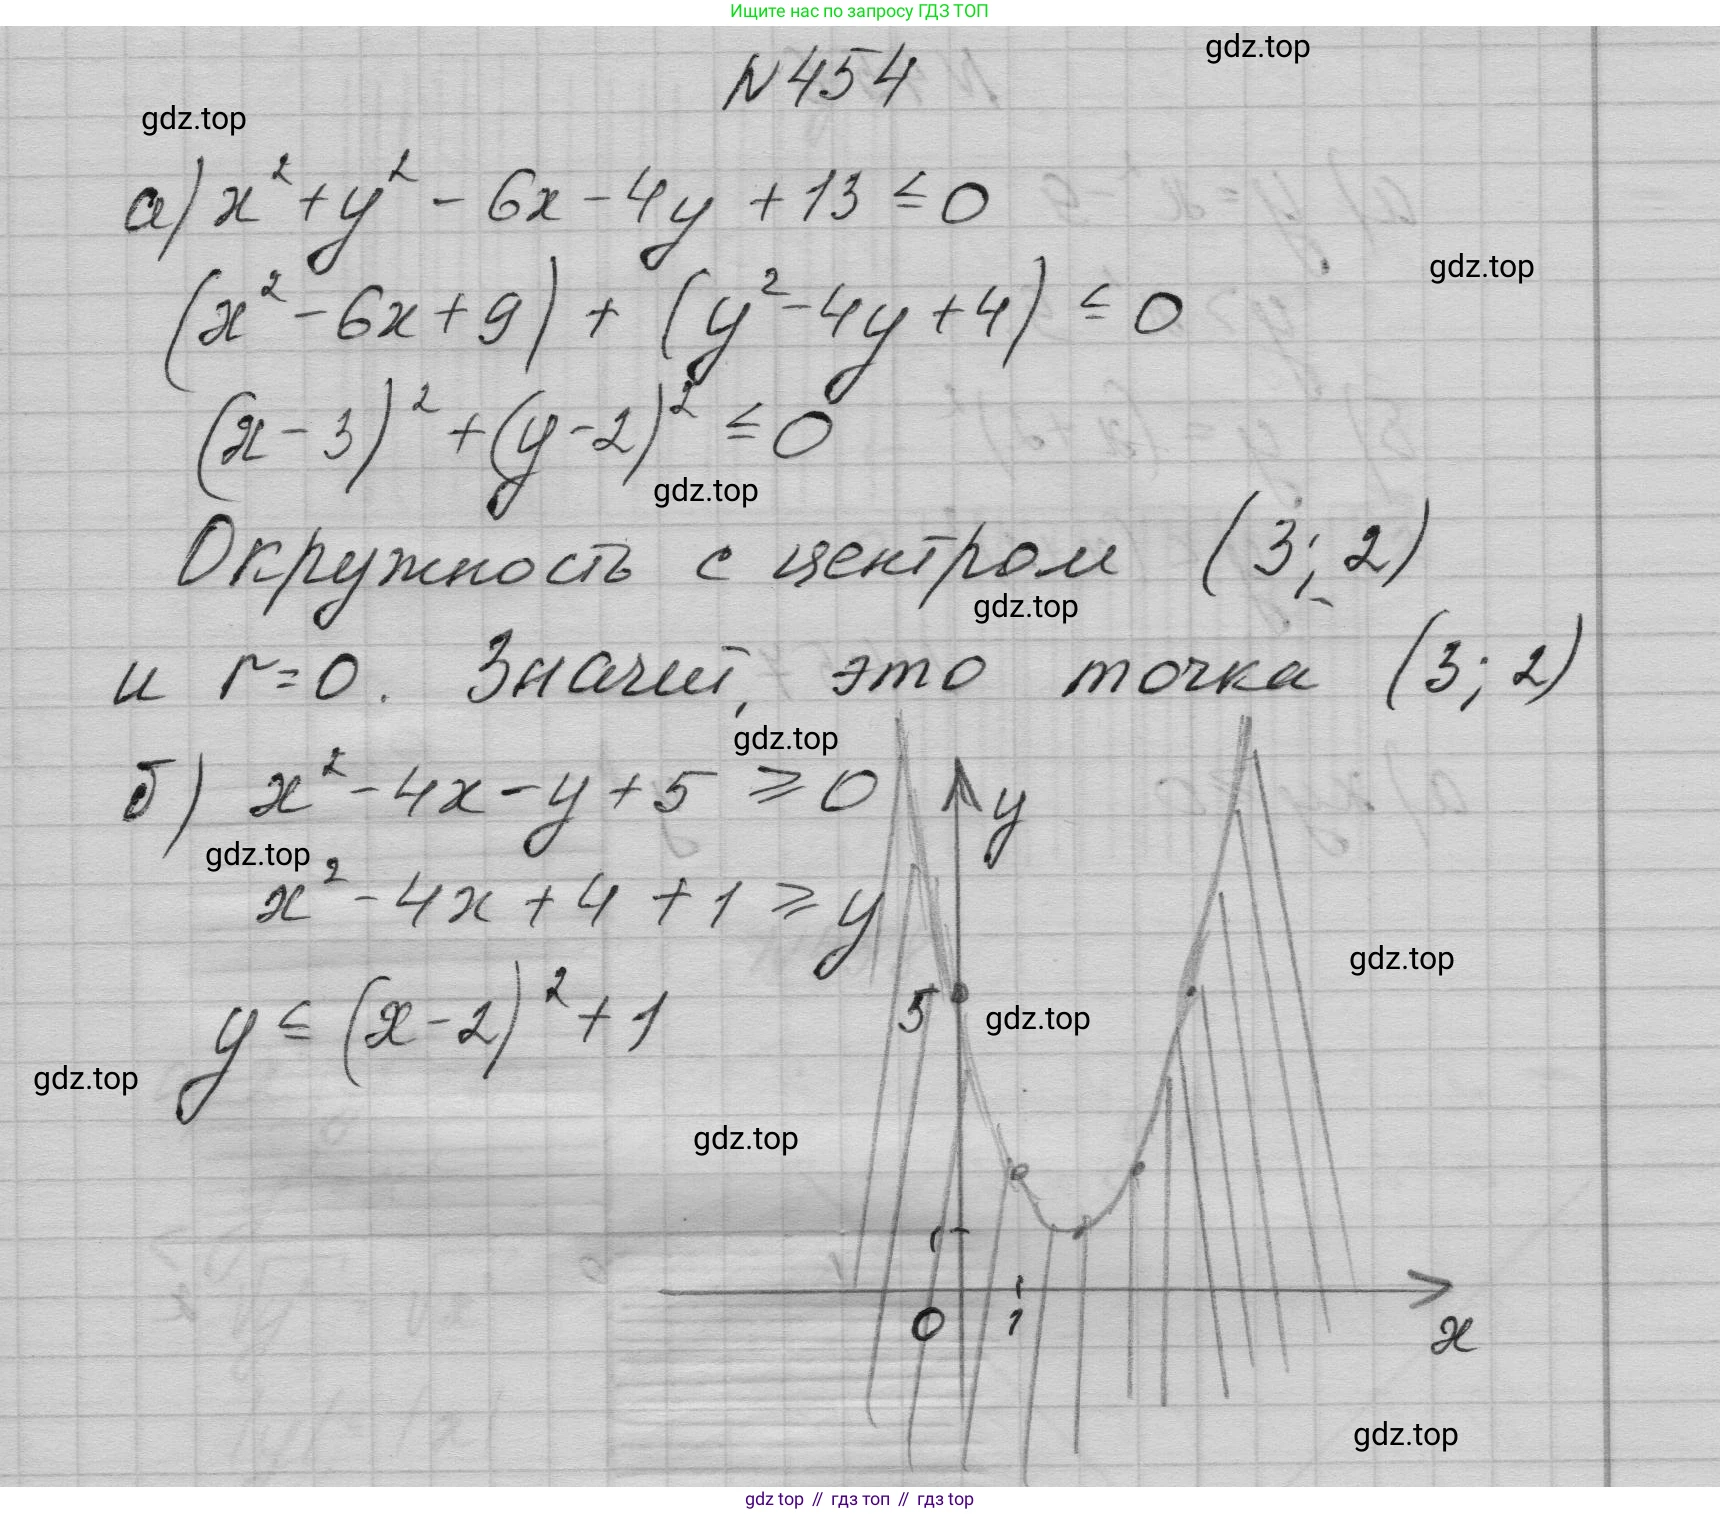 Ищите нас по запросу ГДЗ ТОП
N454
gdz.top
gdz.top
а) x² + y² - 6x - 4y + 13 ≤ 0
gdz.top
(x² - 6x + 9) + (y² - 4y + 4) ≤ 0
(x - 3)² + (y - 2)² ≤ 0
gdz.top
Окружность с центром (3; 2)
gdz.top
и r = 0. Значит, это точка (3; 2)
gdz.top
б) x² - 4x - y + 5 ≥ 0
y
gdz.top
x² - 4x + 4 + 1 ≥ y
gdz.top
5
gdz.top
y ≤ (x - 2)² + 1
gdz.top
gdz.top
0
1
x
gdz.top
gdz top // гдз топ // gdz top